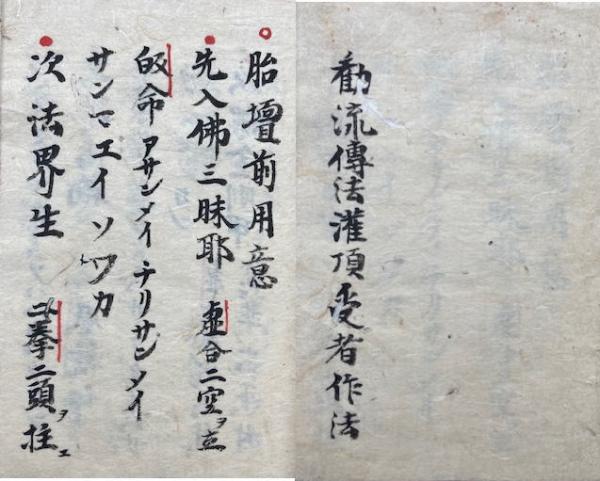 勧流傳法灌頂受者作法
胎壇前用意
先入佛三昧耶 虚合二空ヲ立
皈命 アサンメイ チリサンメイ
サンマエイ ソワカ
次法界生 拳二頭ヲ柱エ